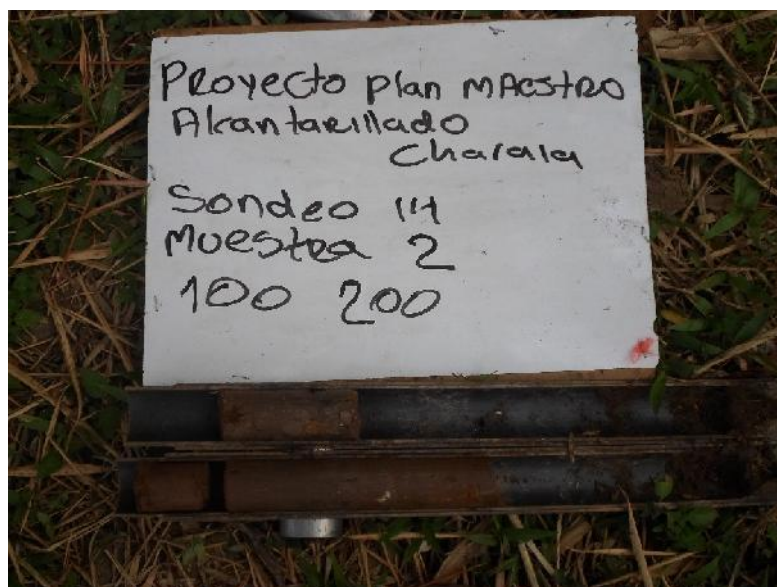 Proyecto plan MAestro
Alcantarillado
Charala
Sondeo 114
Muestra 2
100 200